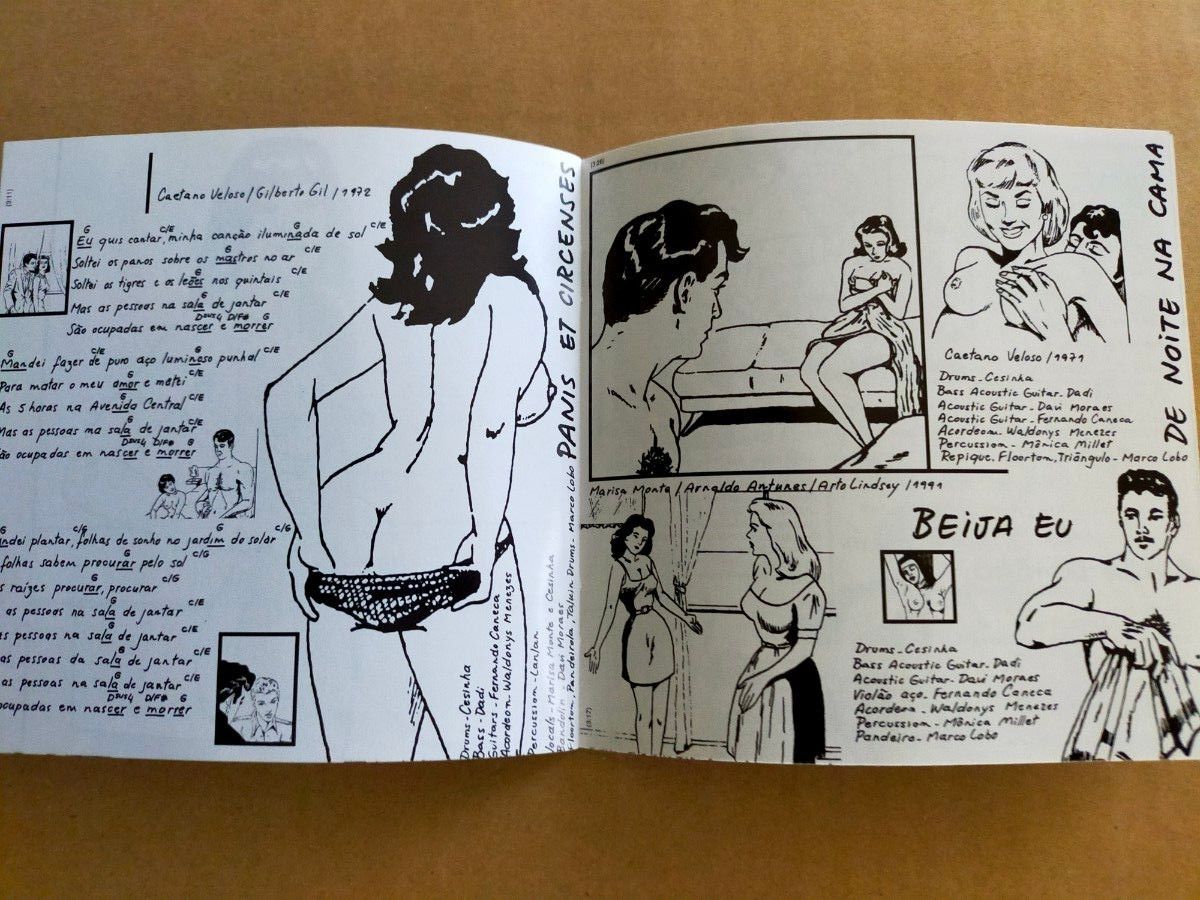 (3:11)
Caetano Veloso/Gilberto Gil/1972
G C/E G C/E
Eu quis cantar, minha canção iluminada de sol
G C/E
Soltei os panos sobre os mastros no ar
G C/E
Soltei os tigres e os leões nos quintais
G C/E
Mas as pessoas na sala de jantar
Dsus4 D/F# G
São ocupadas em nascer e morrer
G C/E G C/E
Mandei fazer de puro aço luminoso punhal
G C/E
Para matar o meu amor e matei
G C/E
As 5 horas na Avenida Central
G C/E
Mas as pessoas na sala de jantar
Dsus4 D/F# G
São ocupadas em nascer e morrer
G C/G G C/G
ndei plantar, folhas de sonho no jardim do solar
G C/G
folhas sabem procurar pelo sol
G C/G
s raízes procurar, procurar
G C/E
as pessoas na sala de jantar
G C/E
s pessoas na sala de jantar
G C/E
as pessoas da sala de jantar
G C/E
as pessoas na sala de jantar
Dsus4 D/F# G
ocupadas em nascer e morrer
PANIS ET CIRCENSES
Drums-Cesinha
Bass-Dadi
Guitars-Fernando Caneca
Acordeon-Waldonys Menezes
Percussion-Lanlan
Vocals-Marisa Monte e Cesinha
Bandolin-Davi Moraes
Floortom, Pandeirola, Talkin Drums-Marco Lobo
(3:26)
DE NOITE NA CAMA
Caetano Veloso/1971
Drums-Cesinha
Bass Acoustic Guitar-Dadi
Acoustic Guitar-Davi Moraes
Acoustic Guitar-Fernando Caneca
Acordeom-Waldonys Menezes
Percussion-Mônica Millet
Repique. Floortom, Triângulo-Marco Lobo
Marisa Monte/Arnaldo Antunes/Arto Lindsey/1991
BEIJA EU
(3:17)
Drums-Cesinha
Bass Acoustic Guitar-Dadi
Acoustic Guitar-Davi Moraes
Violão aço. Fernando Caneca
Acordeom-Waldonys Menezes
Percussion-Mônica Millet
Pandeiro-Marco Lobo